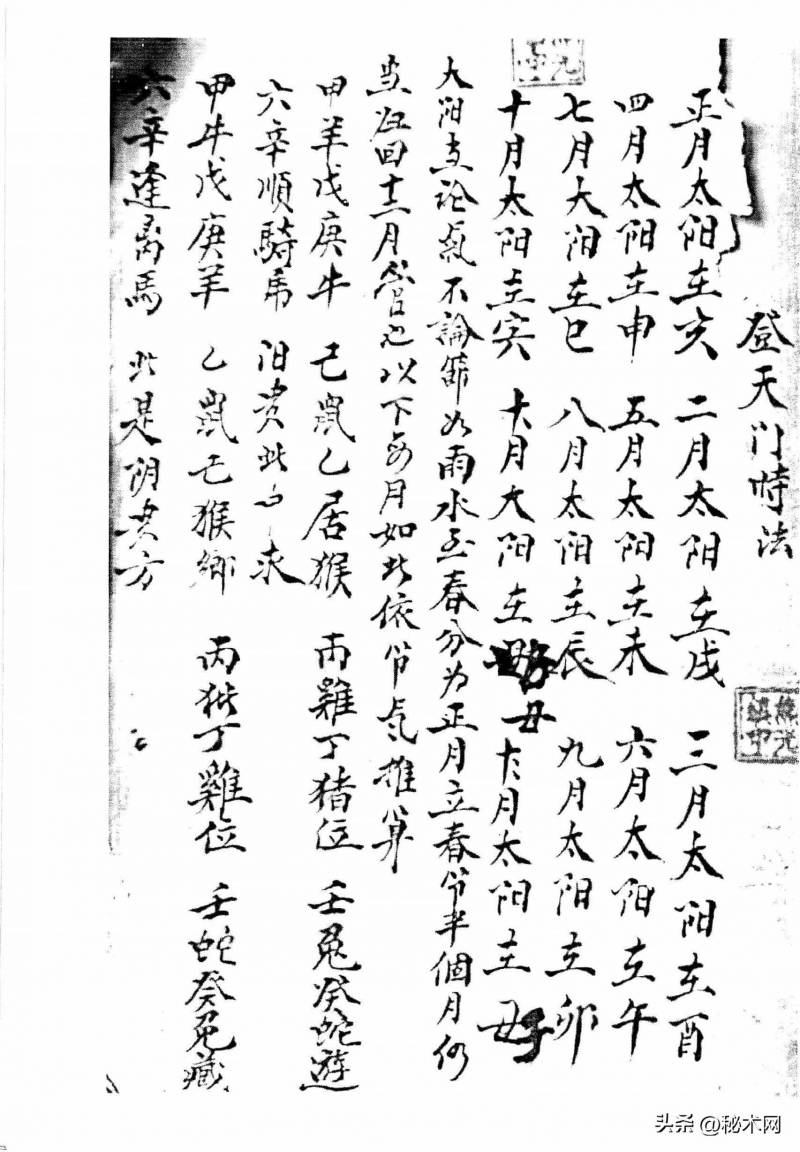 登天门時法
正月太阳在亥 二月太阳在戌 三月太阳在酉
四月太阳在申 五月太阳在未 六月太阳在午
七月大阳在巳 八月太阳在辰 九月太阳在卯
十月太阳在寅 十一月大阳在丑 十二月太阳在子
大阳在论氣不論節如雨水至春分为正月立春节半個月仍
在旧十二月管也以下每月如此依节气推算
甲羊戊庚牛 己鼠乙居猴 丙雞丁猪位 壬兔癸蛇遊
六辛順騎虎 阳贵此中求
甲牛戊庚羊 乙鼠己猴鄉 丙猪丁雞位 壬蛇癸兔藏
六辛逢离馬 此是阴贵方
头条 @秘术网